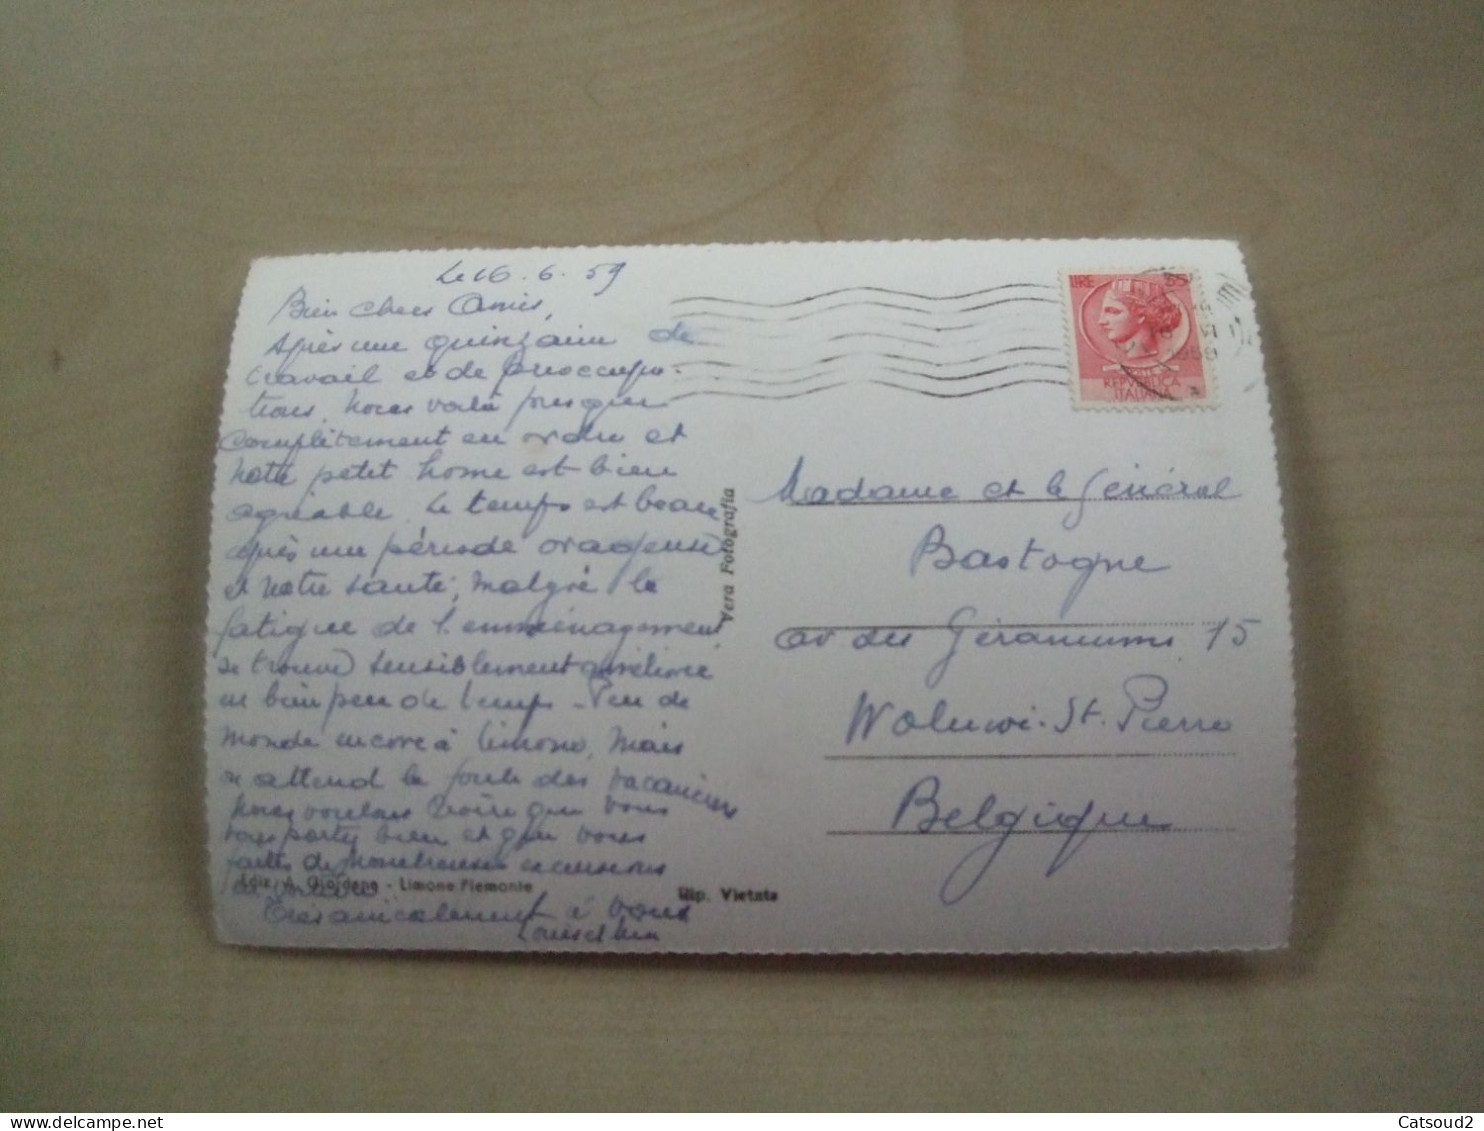 Le 16 . 6 . 59
Bien chers Amis,
Après une quinzaine de
travail et de préoccupa-
tions, nous voilà presque
complètement en ordre et
notre petit home est bien
agréable. Le temps est beau
après une période orageuse
et notre santé, malgré la
fatigue de l'emménagement
se trouve sensiblement améliorée
en bien peu de temps - Peu de
monde encore à Limone, mais
on attend la foule des vacanciers
Nous voulons croire que vous
vous portez bien et que vous
faites de nombreuses excursions
en voiture
Très amicalement à vous
Ediz. A. Giordano - Limone Piemonte
Rip. Vietata
Vera Fotografia
LIRE 35
REPVBBLICA
ITALIANA
Madame et le Général
Bastogne
av des Géraniums 15
Woluwé-St-Pierre
Belgique
Catsoud2